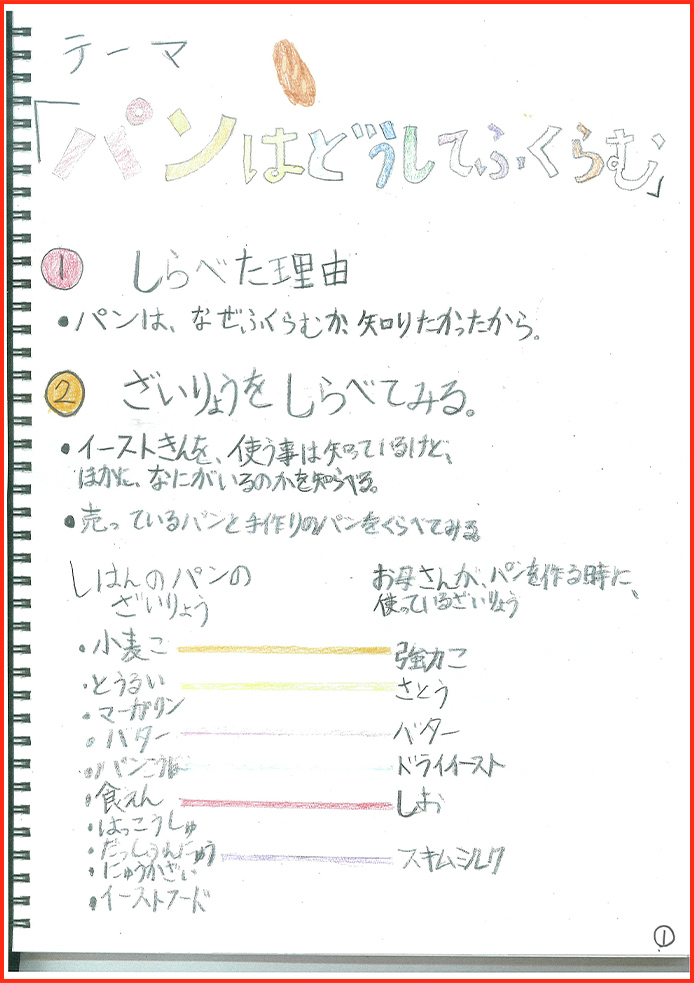 テーマ
「パンはどうしてふくらむ」
1 しらべた理由
・パンは、なぜふくらむか知りたかったから。
2 ざいりょうをしらべてみる。
・イーストきんを、使う事は知っているけど、
ほかに、なにがいるのかを知らべる。
・売っているパンと手作りのパンをくらべてみる。
しはんのパンの
ざいりょう
お母さんが、パンを作る時に、
使っているざいりょう
・小麦こ 強力こ
・とうるい さとう
・マーガリン
・バター バター
・パンこうぼ ドライイースト
・食えん しお
・はっこうしゅ
・だっしふんにゅう スキムミルク
・にゅうかざい
・イーストフード
1